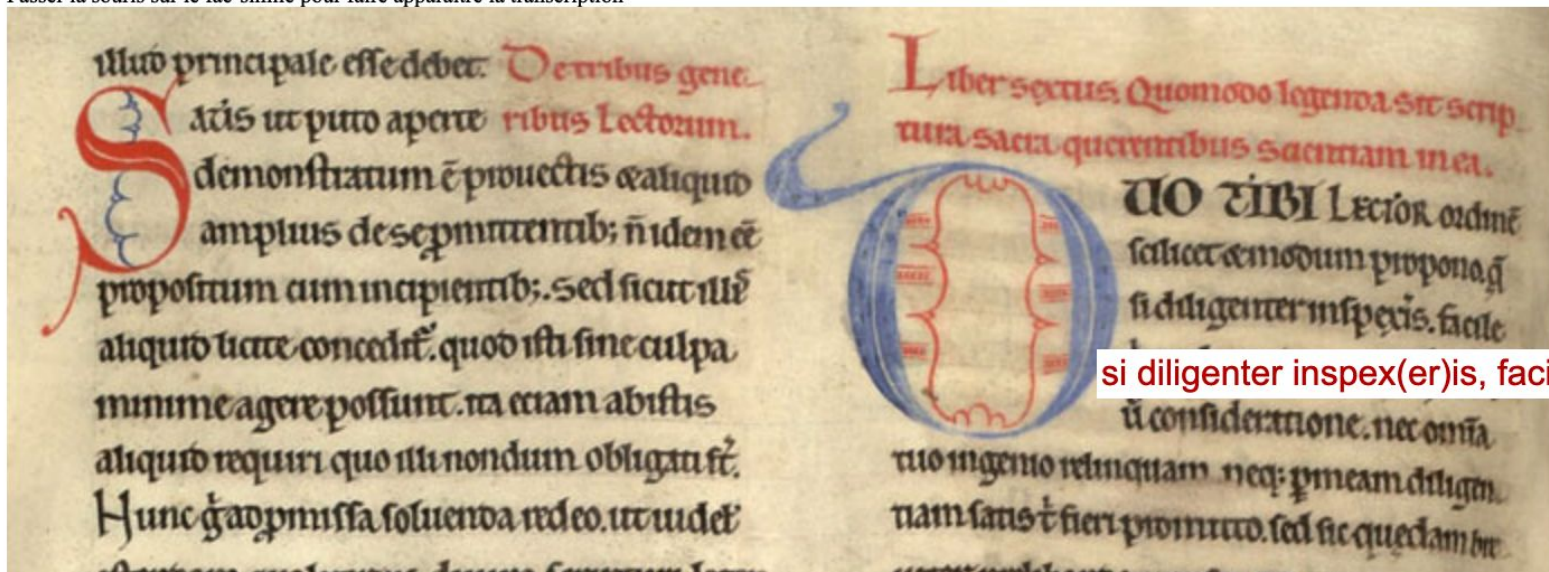 Passer la souris sur le fac-similé pour faire apparaître la transcription
illud principale esse debet. De tribus gene
Satis ut puto aperte ribus Lectorum.
demonstratum ē prouectis & aliquid
amplius de se ꝓmittentib; n̄ idem eē
propositum cum incipientib;. Sed sicut illis
aliquid licite concedit̃. quod isti sine culpa
minime agere possunt. ita etiam ab istis
aliquid requiri quo illi nondum obligati st̃.
Hunc g̃ ad ꝓmissa soluenda redeo. ut uidet̃
Liber sextus. Quomodo legenda sit scrip
tura sacra querentibus scientiam in ea.
DUO TIBI LECTOR ordinē
scilicet & modum propono. q̄
si diligenter inspexis. facile
si diligenter inspex(er)is, faci
ũ consideratione. nec om̄ia
tuo ingenio relinquam. neq; ꝑ meam diligen
tiam satis t̃ fieri promitto. sed sic quędam bre